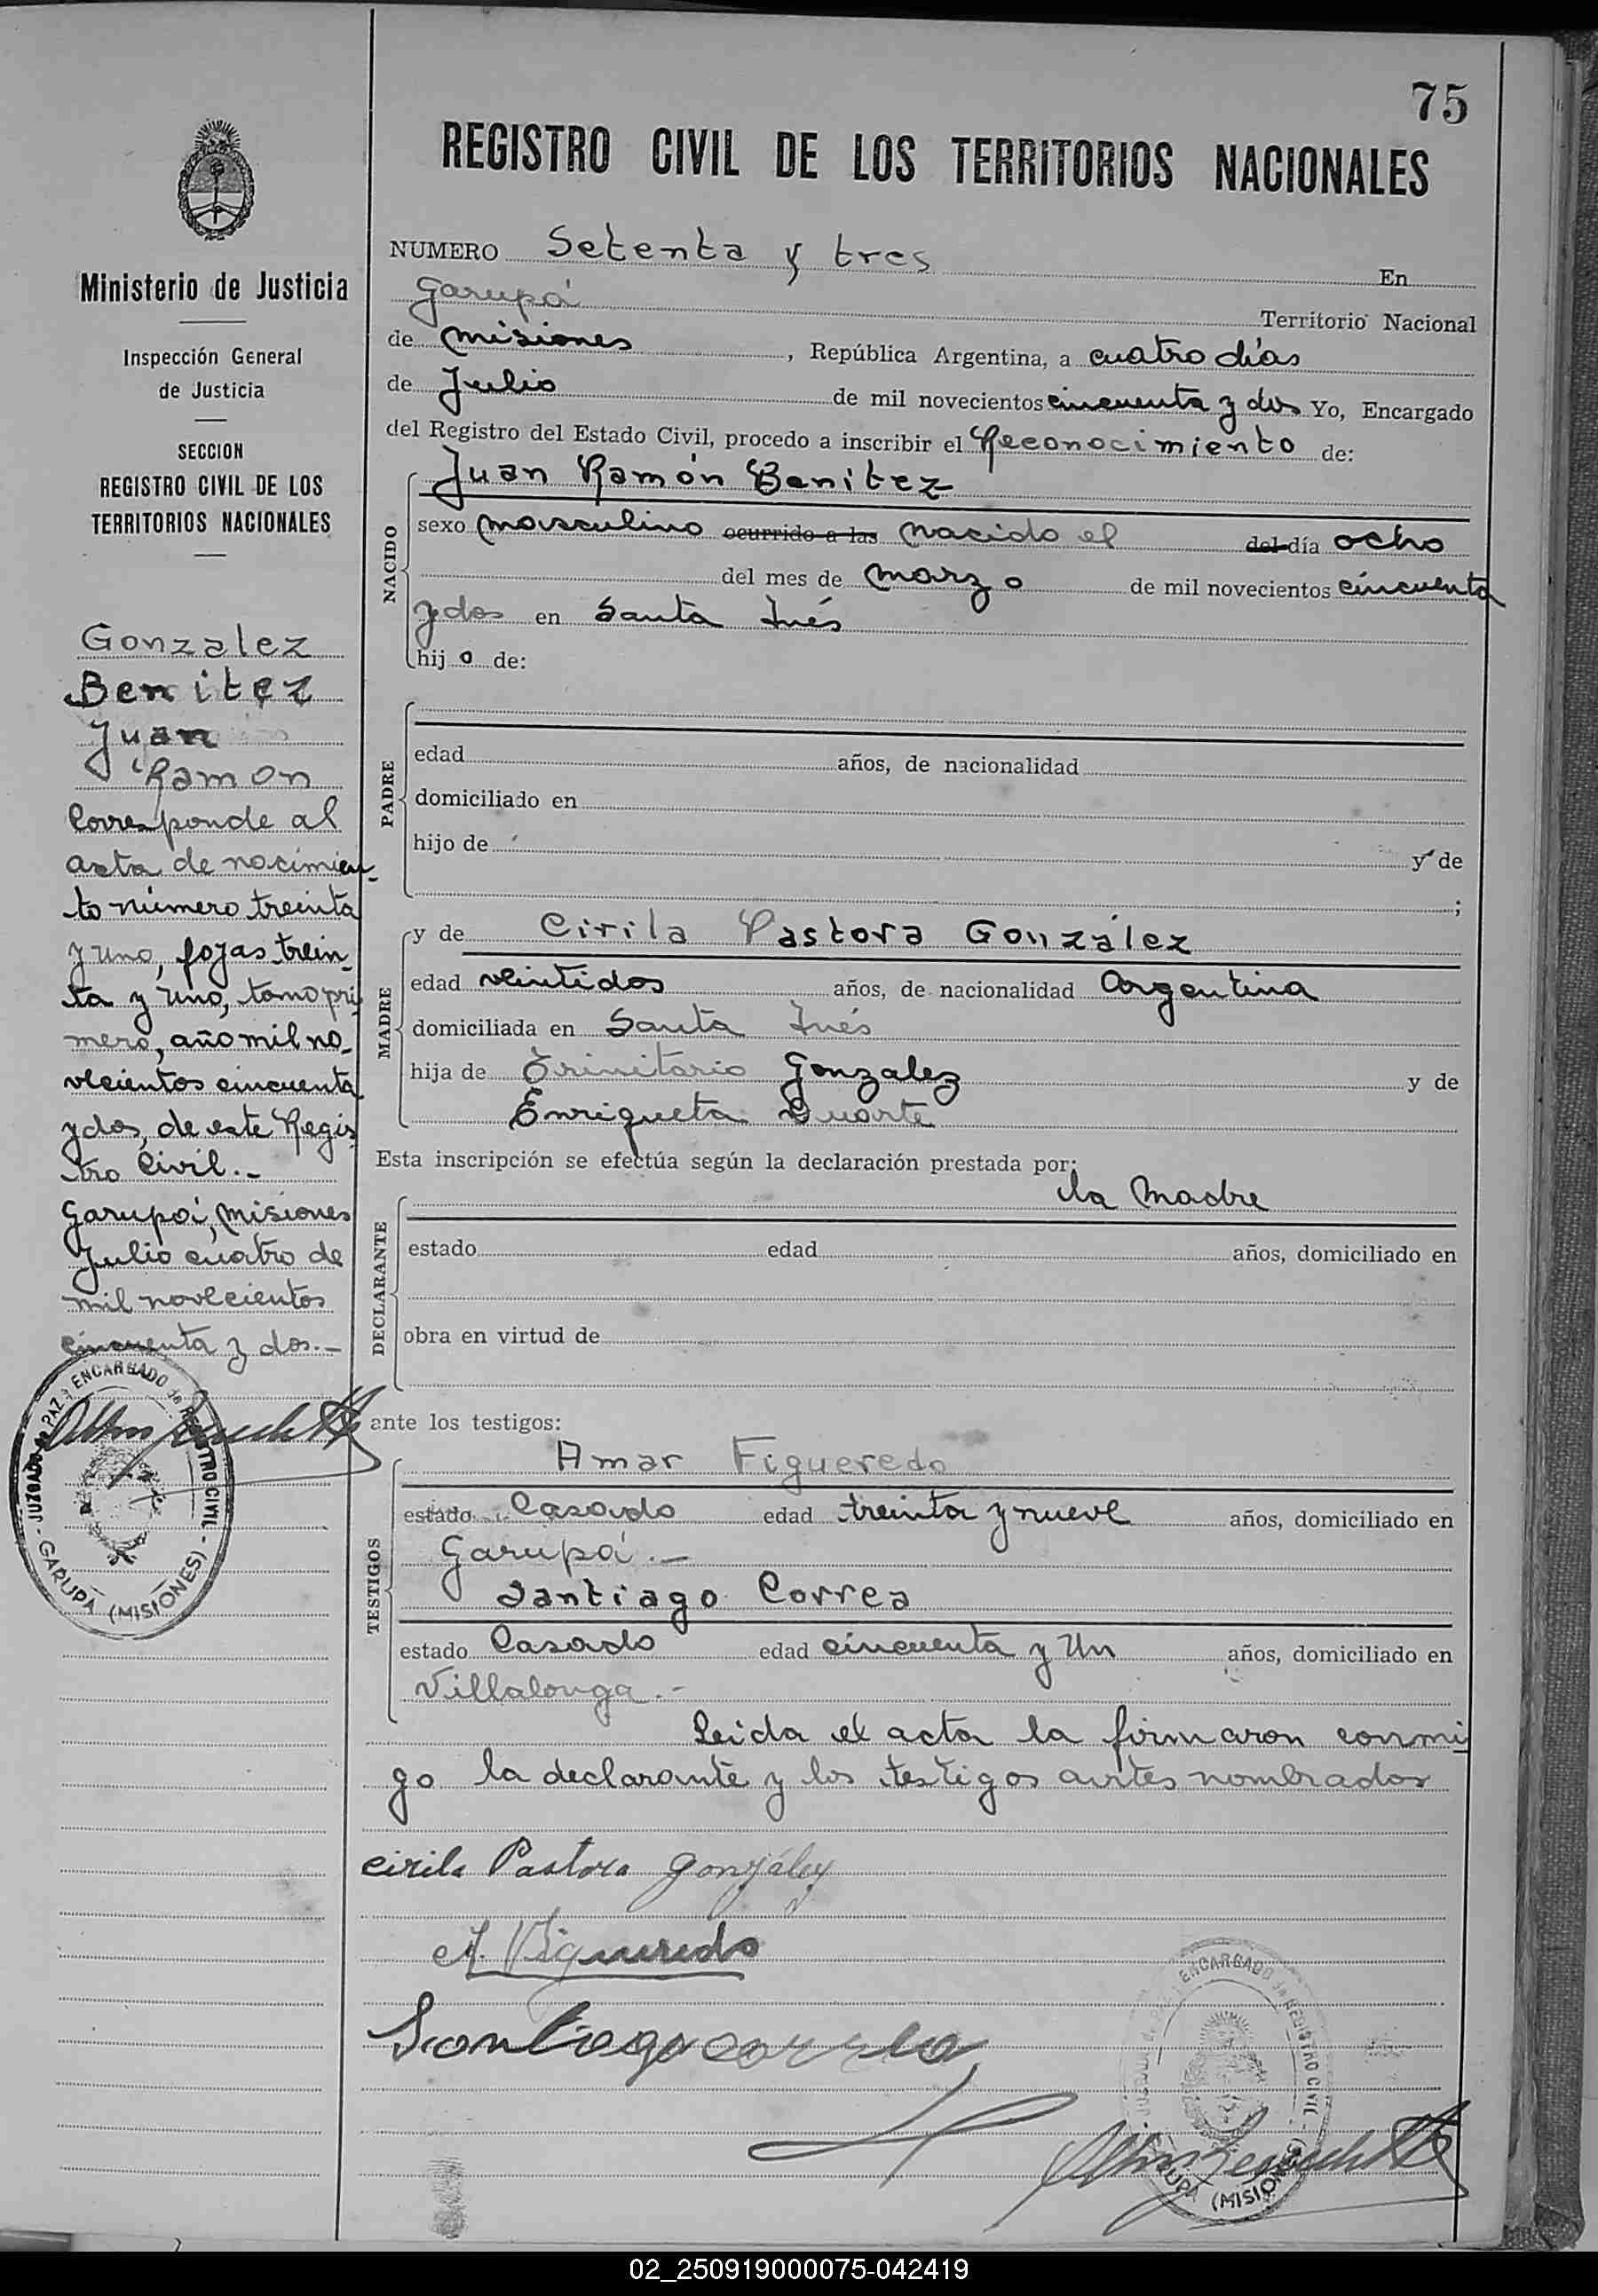 75
REGISTRO CIVIL DE LOS TERRITORIOS NACIONALES
Ministerio de Justicia
Inspección General
de Justicia
SECCION
REGISTRO CIVIL DE LOS
TERRITORIOS NACIONALES
Gonzalez
Benitez
Juan
Ramon
Corresponde al
acta de nacimien-
to número treinta
y uno, fojas trein-
ta y uno, tomo pri
mero, año mil no-
vecientos cincuenta
y dos, de este Regis
tro Civil.-
Garupá, Misiones
Julio cuatro de
mil novecientos
cincuenta y dos.-
JUZGADO de PAZ y ENCARGADO de REGISTRO CIVIL - GARUPÁ (MISIONES) -
NUMERO Setenta y tres En
Garupá Territorio Nacional
de Misiones, República Argentina, a cuatro días
de Julio de mil novecientos cincuenta y dos Yo, Encargado
del Registro del Estado Civil, procedo a inscribir el Reconocimiento de:
NACIDO
Juan Ramón Benitez
sexo masculino ocurrido a las nacido el del día ocho
del mes de Marzo de mil novecientos cincuenta
y dos en Santa Inés
hijo de:
PADRE
edad años, de nacionalidad
domiciliado en
hijo de y de
;
MADRE
y de Cirila Pastora González
edad veintidos años, de nacionalidad Argentina
domiciliada en Santa Inés
hija de Trinitario Gonzalez y de
Enriqueta Duarte
Esta inscripción se efectúa según la declaración prestada por:
la Madre
DECLARANTE
estado edad años, domiciliado en
obra en virtud de
ante los testigos:
TESTIGOS
Amar Figueredo
estado Casado edad treinta y nueve años, domiciliado en
Garupá.-
Santiago Correa
estado Casado edad cincuenta y Un años, domiciliado en
Villalonga.-
Leida el acta la firmaron conmi
go la declarante y los testigos antes nombrados
Cirila Pastora González
A. Figueredo
Santiago correa
ENCARGADO de REGISTRO CIVIL - GARUPÁ (MISIONES)
02_250919000075-042419